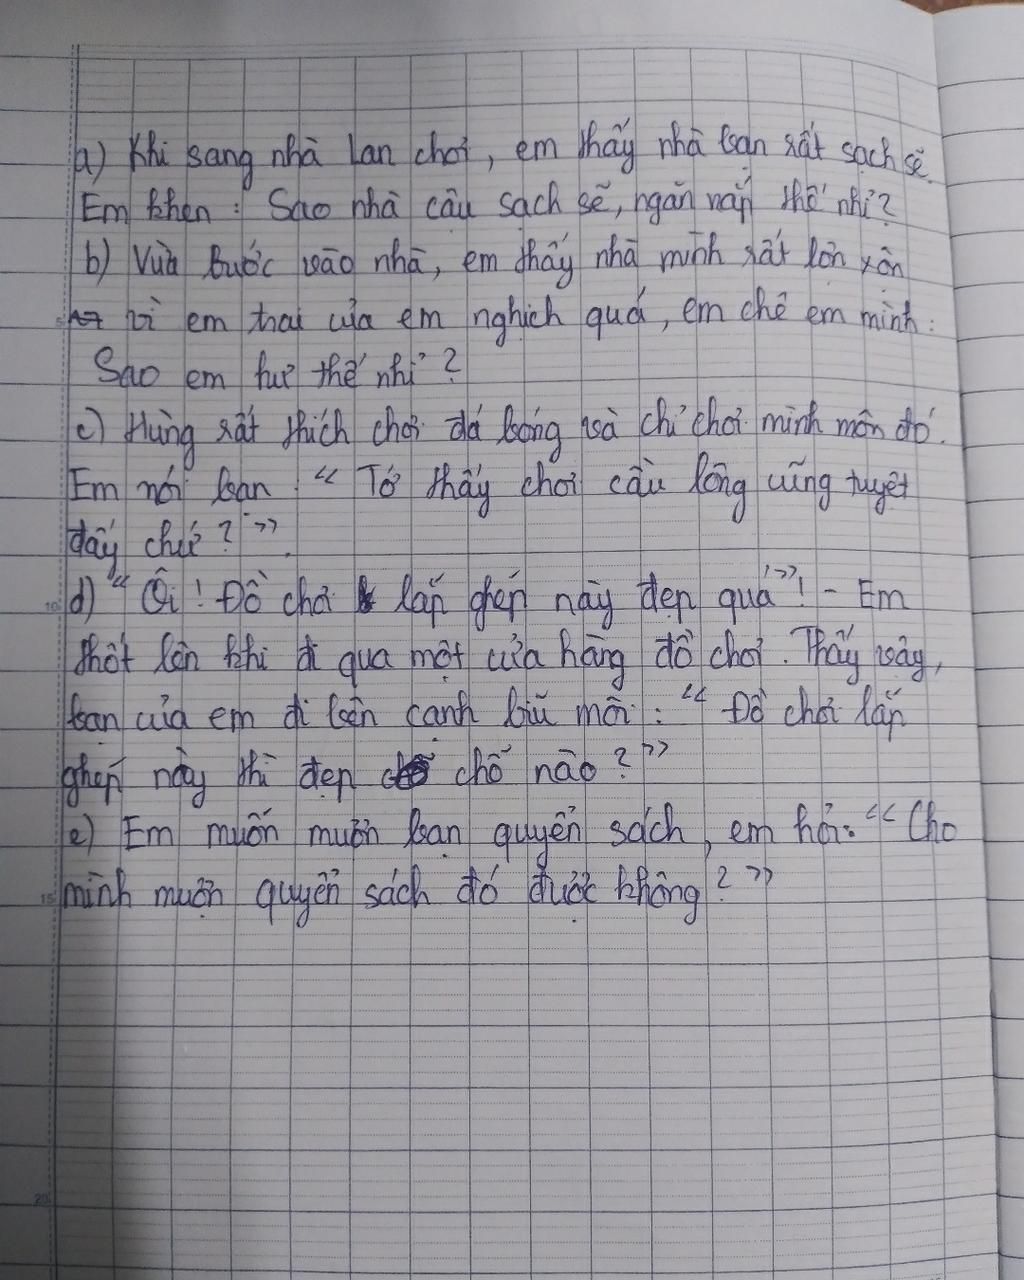 a) Khi sang nhà Lan chơi, em thấy nhà bạn rất sạch sẽ.
Em khen : Sao nhà cậu sạch sẽ, ngăn nắp thế nhỉ?
b) Vừa bước vào nhà, em thấy nhà mình rất lộn xộn
vì em trai của em nghịch quá, em chê em mình :
Sao em hư thế nhỉ ?
c) Hùng rất thích chơi đá bóng và chỉ chơi mình môn đó.
Em nói bạn : " Tớ thấy chơi cầu lông cũng tuyệt
đấy chứ ? ".
d) " Ôi ! Đồ chơi lắp ghép này đẹp quá "! - Em
thốt lên khi đi qua một cửa hàng đồ chơi. Thấy vậy,
bạn của em đi bên cạnh bĩu môi : " Đồ chơi lắp
ghép này thì đẹp chỗ nào ? "
e) Em muốn mượn bạn quyển sách, em hỏi: " Cho
mình mượn quyển sách đó được không ? "
5
10
15
20